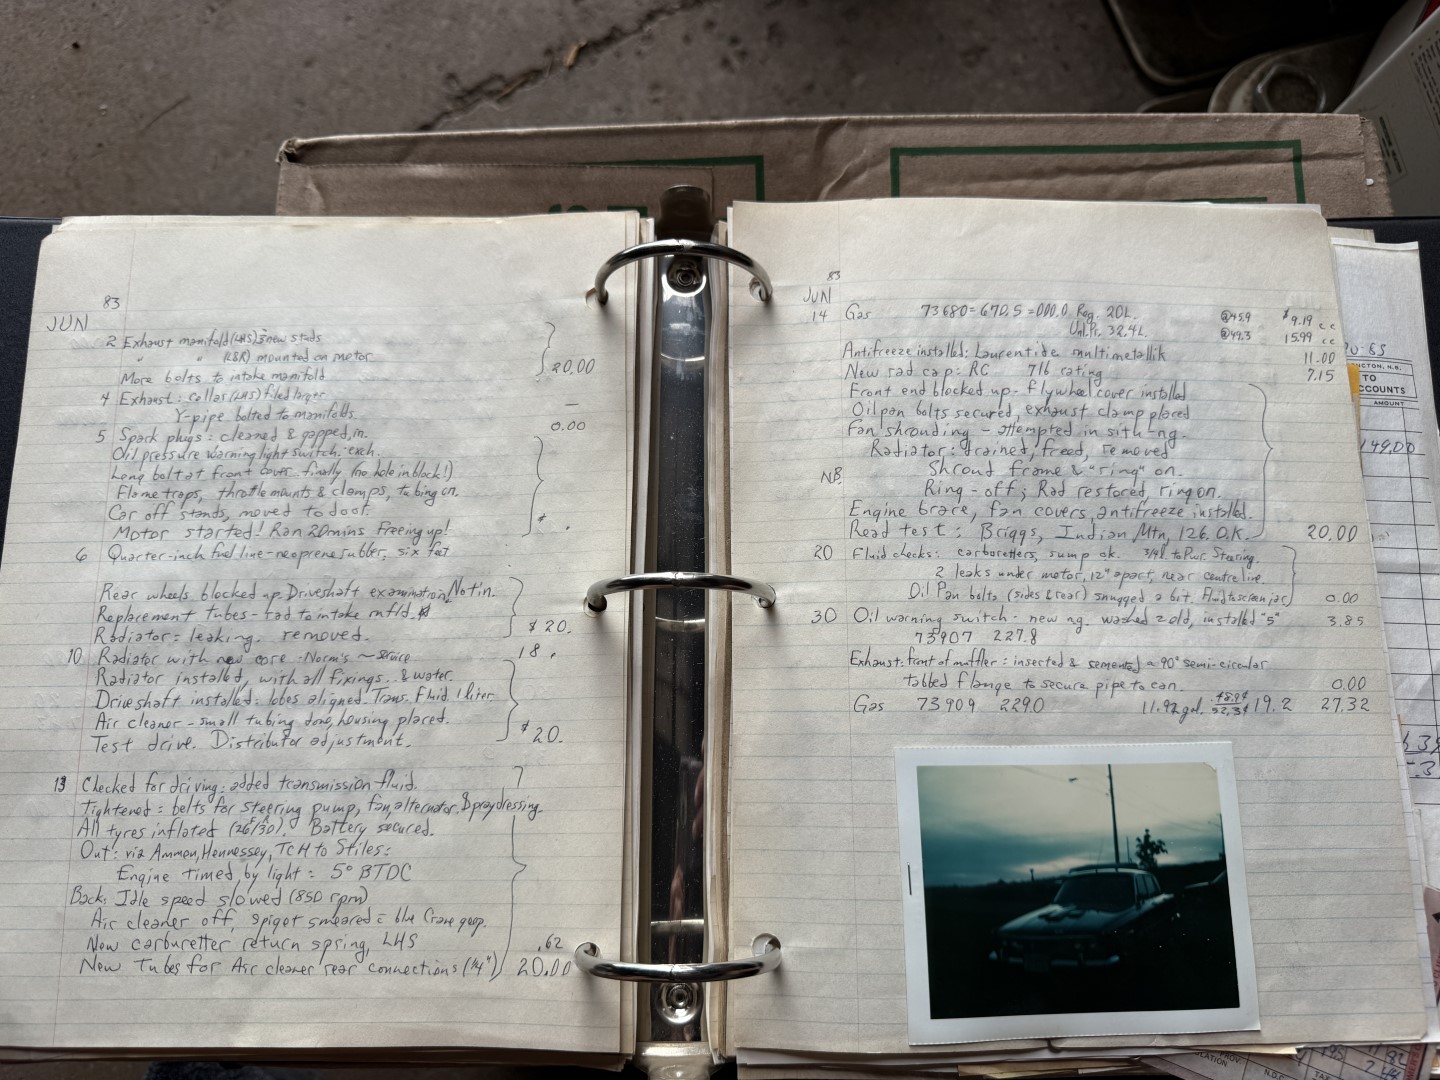 83
JUN
2 Exhaust manifold (LHS) 3 new studs
" " (RSR) mounted on motor
More bolts to intake manifold.
20,00
4 Exhaust: collar (LHS) filed larger
—
Y-pipe bolted to manifolds.
0.00
5 Spark plugs: cleaned & gapped, in.
Oil pressure warning light switch - exch.
Long bolt at front cover... finally (no hole in block!)
Flame traps, throttle mounts & clamps, tubing on.
Car off stands, moved to door.
Motor started! Ran 20 mins Freeing up!
$ .
6 Quarter-inch fuel line - neoprene rubber, six feet
Rear wheels blocked up. Driveshaft examination. Not in.
Replacement tubes - rad to intake mnfld.
Radiator = leaking. removed.
$20.
10 Radiator with new core - Norm's ~ Service
18.
Radiator installed, with all fixings... & water.
Driveshaft installed: lobes aligned. Trans. Fluid. 1 liter
Air cleaner - small tubing done, housing placed.
Test drive. Distributor adjustment.
$20.
13 Checked for driving: added transmission fluid.
Tightened = belts for steering pump, fan, alternator. Spray dressing.
All tyres inflated (26F/30R). Battery secured.
Out: via Ammon, Hennessey, TCH to Stiles:
Engine timed by light = 5° BTDC
Back: Idle speed slowed (850 rpm)
Air cleaner off, spigot smeared = blue Crane goop.
New carburetter return spring, LHS
.62
New Tubes for Air cleaner rear connections (1/4")
20.00
83
JUN
14 Gas 73680 = 670.5 = 000.0 Reg. 20L. @45.9 $9.19 cc
Unl. Pr. 32.4L. @49.3 15.99 cc
Antifreeze installed: Laurentide multimetallik 11.00
New rad cap: RC 7lb rating 7.15
Front end blocked up - flywheel cover installed
Oil pan bolts secured, exhaust clamp placed
Fan shrouding - attempted in situ - ng.
Radiator: drained, freed, removed
NB. Shroud frame & "ring" on.
Ring - off; Rad restored, ring on.
Engine brace, fan covers, antifreeze installed.
Road test: Briggs, Indian Mtn, 126. O.K. 20.00
20 Fluid checks: carburetters, sump ok. 3/4L to Pwr. Steering.
2 leaks under motor, 12" apart, near centreline.
Oil Pan bolts (sides & rear) snugged a bit. 0.00
30 Oil warning switch - new ng. washed 2 old, installed "5" 3.85
73907 227.8
Exhaust: front of muffler: inserted & semented a 90° semi-circular
tabbed flange to secure pipe to can. 0.00
Gas 73909 229.0 11.92 gal. 48.9¢ 52.3¢ 19.2 27.32
85
TO
CCOUNTS
AMOUNT
149.00